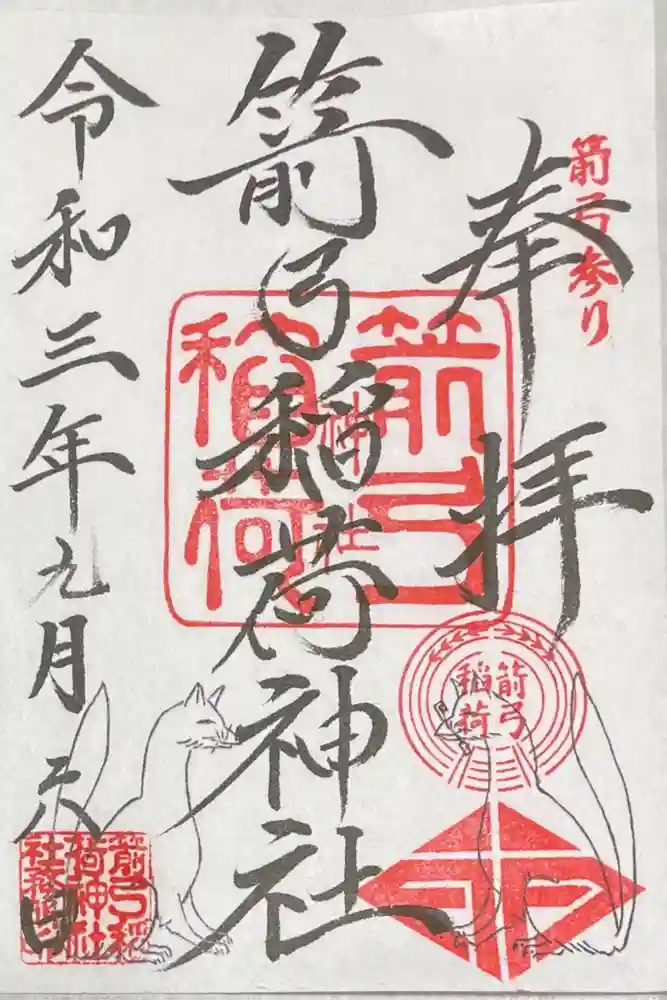 箭弓参り
奉拝
箭弓稲荷神社
令和三年九月六日
箭弓
稲荷
神社
箭弓
稲荷
箭弓稲
荷神社